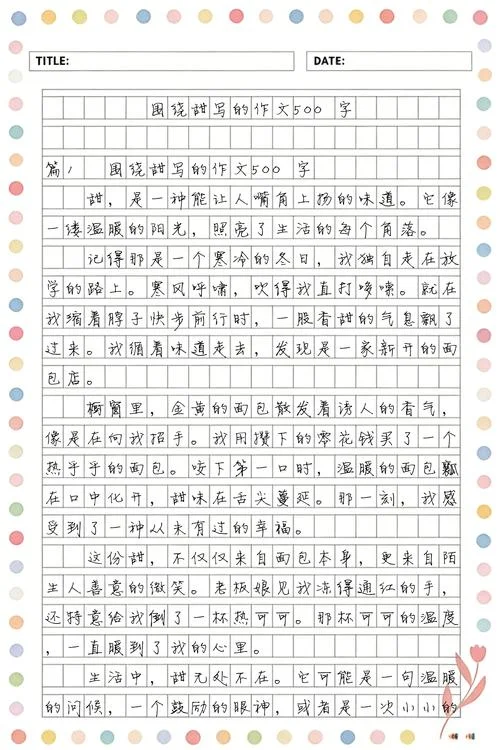 TITLE:
DATE:
围绕甜写的作文500 字
篇1 围绕甜写的作文500 字
甜，是一种能让人嘴角上扬的味道。它像
一缕温暖的阳光，照亮了生活的每个角落。
记得那是一个寒冷的冬日，我独自走在放
学的路上。寒风呼啸，吹得我直打哆嗦。就在
我缩着脖子快步前行时，一股香甜的气息飘了
过来。我循着味道走去，发现是一家新开的面
包店。
橱窗里，金黄的面包散发着诱人的香气，
像是在向我招手。我用攒下的零花钱买了一个
热乎乎的面包。咬下第一口时，温暖的面包瓤
在口中化开，甜味在舌尖蔓延。那一刻，我感
受到了一种从未有过的幸福。
这份甜，不仅仅来自面包本身，更来自陌
生人善意的微笑。老板娘见我冻得通红的手，
还特意给我倒了一杯热可可。那杯可可的温度
，一直暖到了我的心里。
生活中，甜无处不在。它可能是一句温暖
的问候，一个鼓励的眼神，或者是一次小小的